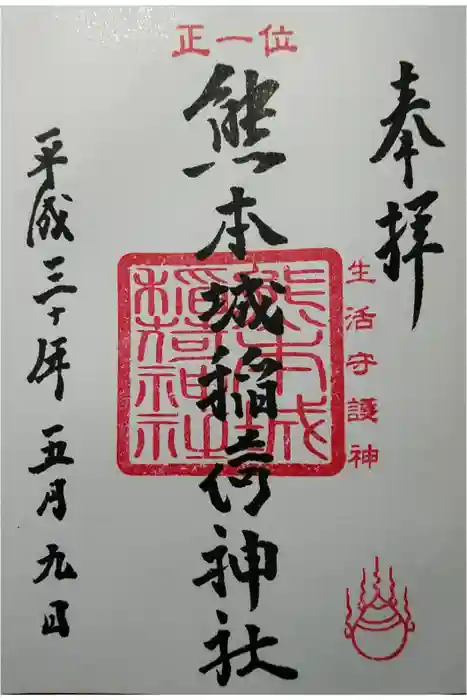 正一位
奉拝
生活守護神
熊本城稲荷神社
熊本城
稲荷神社
平成三十年五月九日